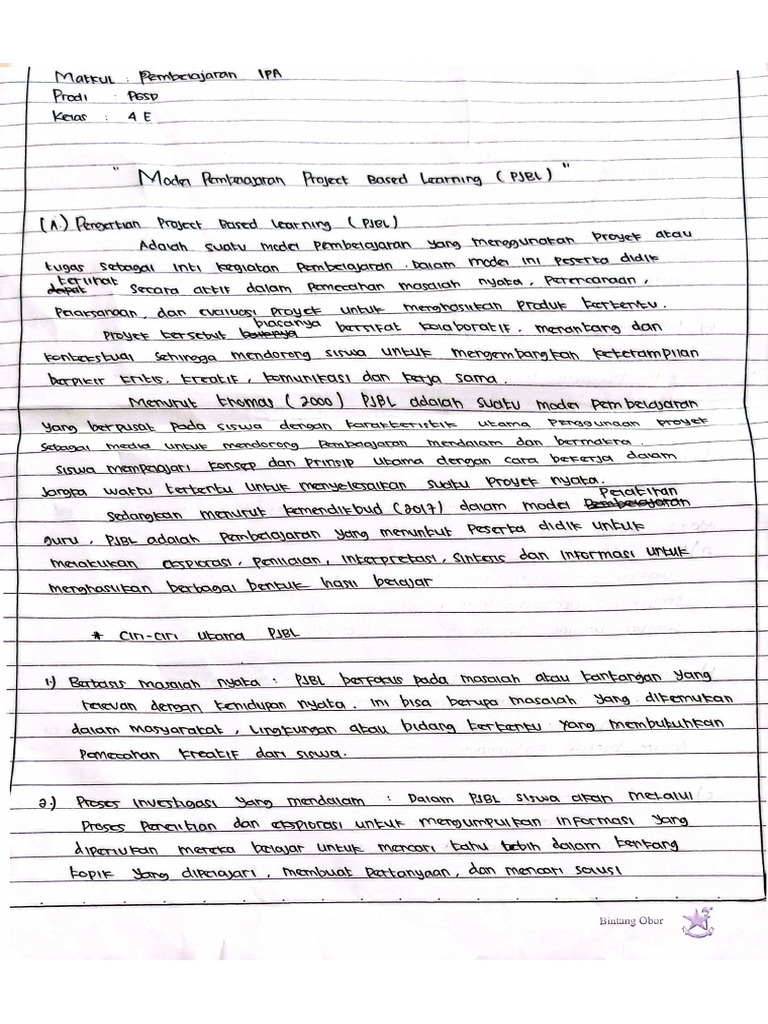 Matkul : Pembelajaran IPA
Prodi : PGSD
Kelas : 4 E
" Model Pembelajaran Project Based Learning (PJBL) "
(A.) Pengertian Project Based Learning (PJBL)
Adalah suatu model pembelajaran yang menggunakan proyek atau
tugas sebagai inti kegiatan pembelajaran. Dalam model ini peserta didik
terlibat
dapat secara aktif dalam pemecahan masalah nyata, perencanaan,
pelaksanaan, dan evaluasi proyek untuk menghasilkan produk tertentu.
biasanya
Proyek tersebut bersifat kolaboratif, menantang dan
kontekstual sehingga mendorong siswa untuk mengembangkan keterampilan
berpikir kritis, kreatif, komunikasi dan kerja sama.
Menurut Thomas (2000) PJBL adalah suatu model pembelajaran
yang berpusat pada siswa dengan karakteristik utama penggunaan proyek
sebagai media untuk mendorong pembelajaran mendalam dan bermakna.
Siswa mempelajari konsep dan prinsip utama dengan cara bekerja dalam
jangka waktu tertentu untuk menyelesaikan suatu proyek nyata.
Pelatihan
Sedangkan menurut kemendikbud (2017) dalam model Pembelajaran
guru, PJBL adalah pembelajaran yang menuntut peserta didik untuk
melakukan eksplorasi, penilaian, interpretasi, sintesis dan informasi untuk
menghasilkan berbagai bentuk hasil belajar
* Ciri-ciri utama PJBL
1.) Berbasis masalah nyata : PJBL berfokus pada masalah atau tantangan yang
relevan dengan kehidupan nyata. Ini bisa berupa masalah yang ditemukan
dalam masyarakat, lingkungan atau bidang tertentu yang membutuhkan
pemecahan kreatif dari siswa.
2.) Proses investigasi yang mendalam : Dalam PJBL siswa akan melalui
proses penelitian dan eksplorasi untuk mengumpulkan informasi yang
diperlukan mereka belajar untuk mencari tahu lebih dalam tentang
topik yang dipelajari, membuat pertanyaan, dan mencari solusi
Bintang Obor